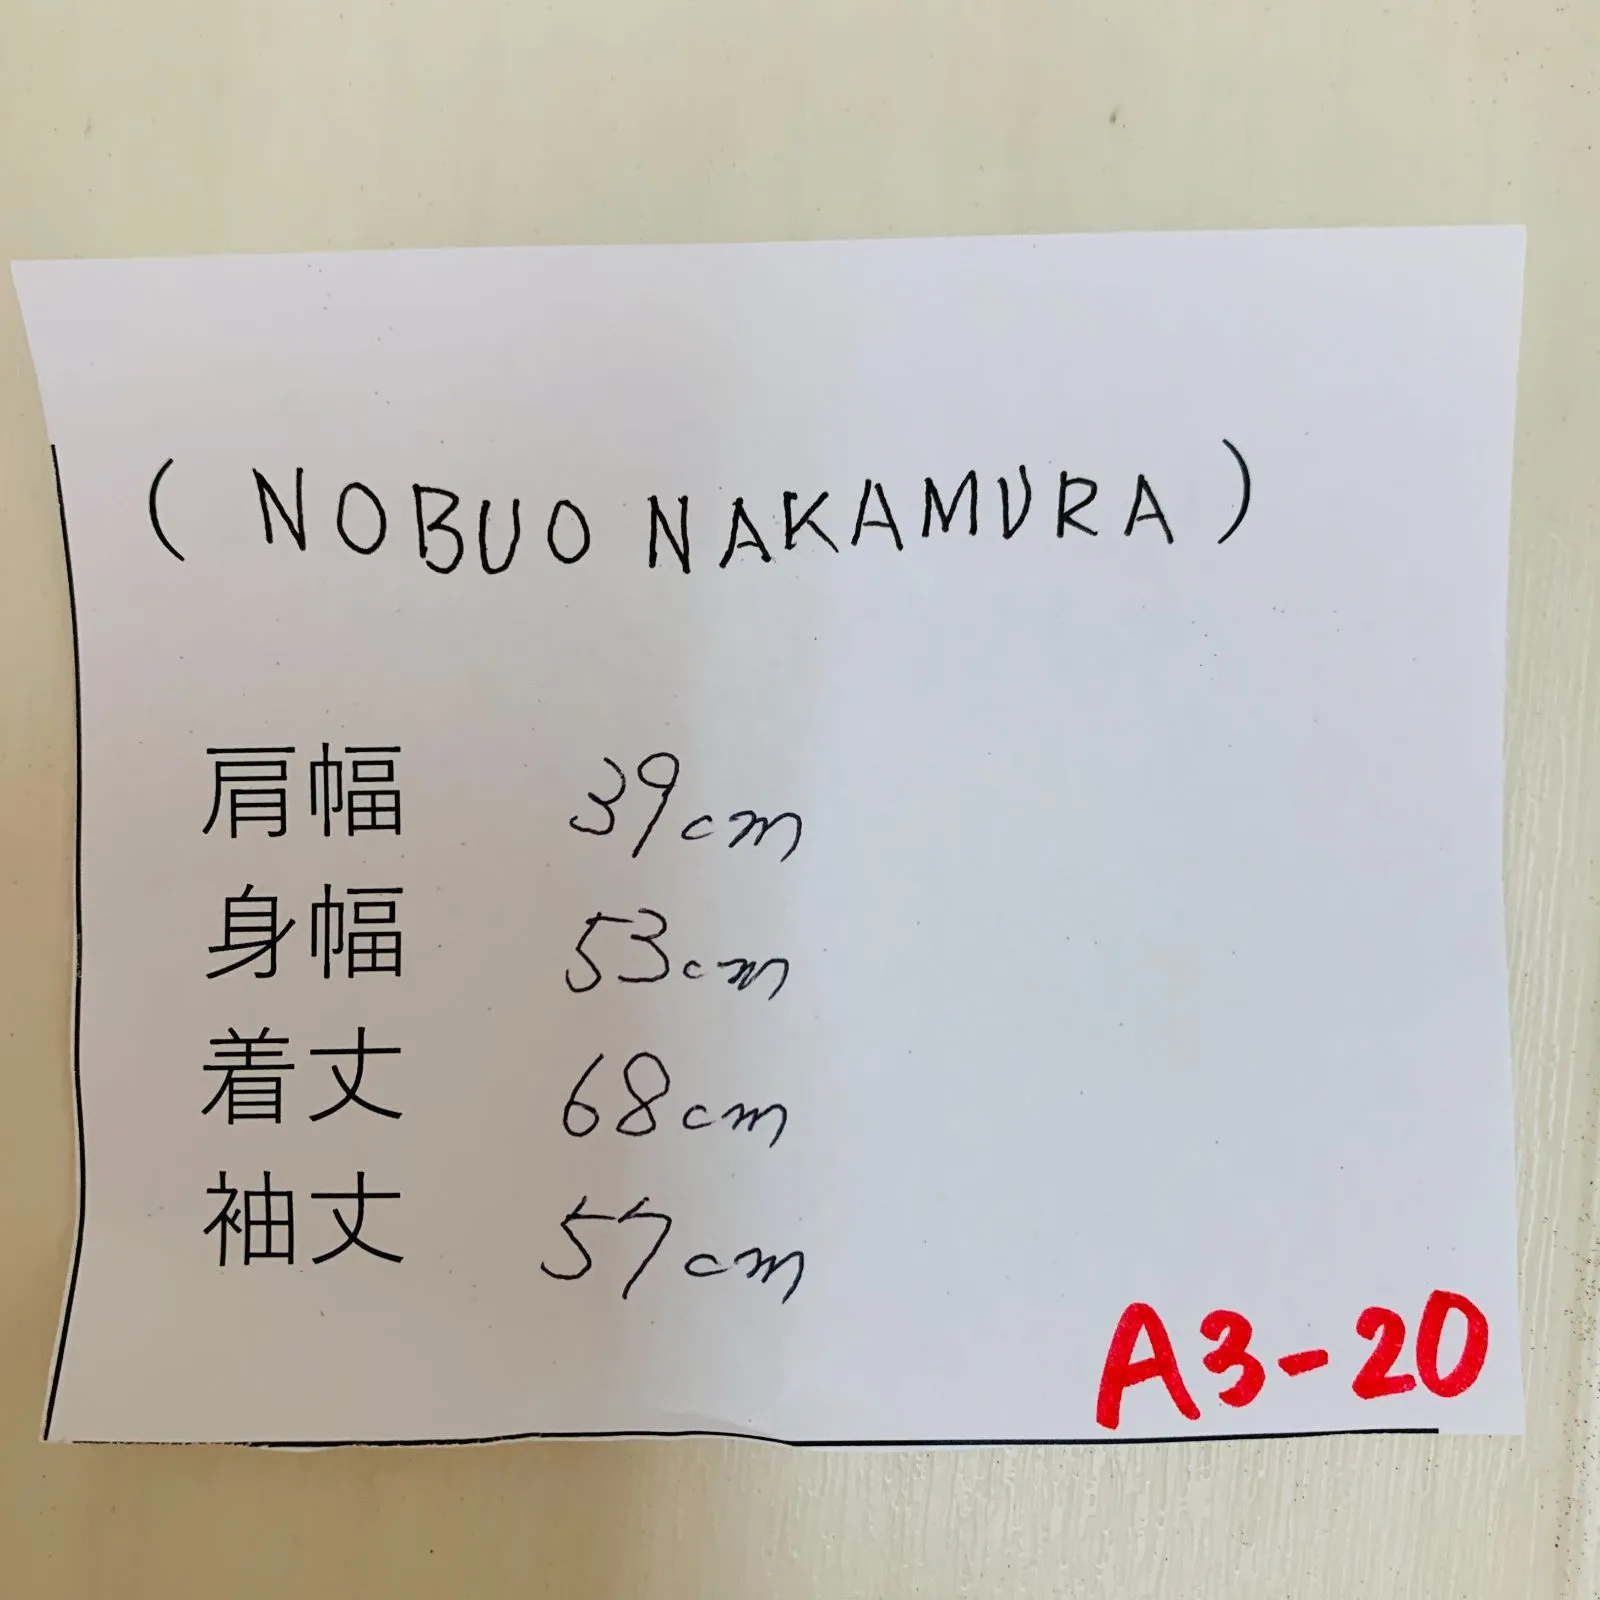 ( NOBUO NAKAMURA )
肩幅 39cm
身幅 53cm
着丈 68cm
袖丈 57cm
A3-20